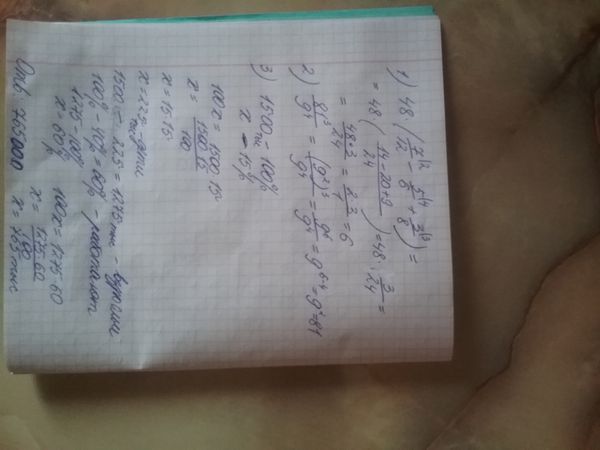 1) 48 (7/12 - 5/6 + 3/8) =
= 48 ( (14 - 20 + 9)/24 ) = 48 · 3/24 =
= 48·3/24 = 2·3/1 = 6
2) 81³/9⁴ = (9²)³/9⁴ = 9⁶/9⁴ = 9⁶⁻⁴ = 9² = 81
3) 1500 тыс - 100%
x - 15%
100x = 1500 · 15
x = 1500 · 15/100
x = 15 · 15
x = 225 тыс - дети
1500 - 225 = 1275 тыс - взрослые
100% - 40% = 60% - работают
1275 - 100%
x - 60%
100x = 1275 · 60
x = 1275 · 60/100
x = 765 тыс
Отв: 765000